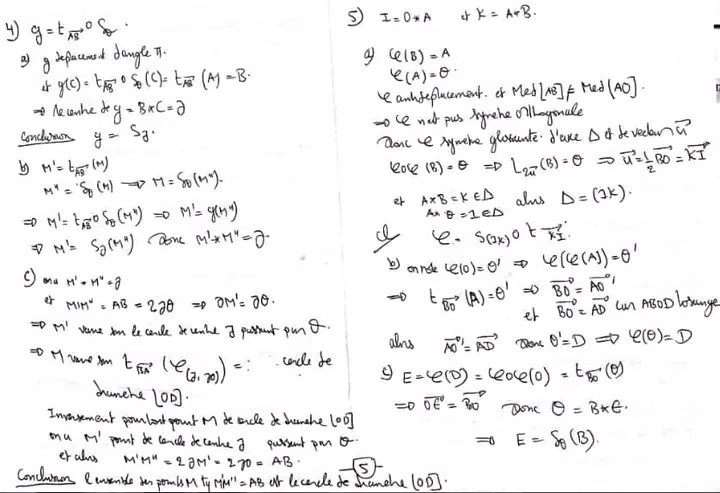 4) g = t_{AB} o S_O
a) g déplacement d'angle π.
et g(C) = t_{AB} o S_O(C) = t_{AB}(A) = B.
⇒ le centre de g = B*C = J
Conclusion g = S_J.
b) M' = t_{AB}(M)
M'' = S_O(M) ⇒ M = S_O(M'').
⇒ M' = t_{AB} o S_O(M'') ⇒ M' = g(M'')
⇒ M' = S_J(M'') donc M'*M'' = J.
c) on a M'*M'' = J
et M'M'' = AB = 2JO ⇒ JM' = JO.
⇒ M' varie sur le cercle de centre J passant par O.
⇒ M varie sur t_{BA}(C_{(J, JO)}) = : cercle de
diamètre [OD].
Inversement pour tout point M de cercle de diamètre [OD]
on a M' point de cercle de centre J passant par O.
et alors M'M'' = 2JM' = 2JO = AB.
Conclusion l'ensemble des points M tq M'M'' = AB est le cercle de diamètre [OD].
5
5) I = O*A et K = A*B.
a) φ(B) = A
φ(A) = O.
φ antidéplacement. et Med[AB] ≠ Med[AO].
⇒ φ n'est pas symétrie orthogonale
Donc φ symétrie glissante d'axe Δ et de vecteur u
φoφ(B) = O ⇒ t_{2u}(B) = O ⇒ u = 1/2 BO = KI
et A*B = K ∈ Δ
A*O = I ∈ Δ alors Δ = (IK).
cl φ = S_{(IK)} o t_{KI}.
b) on note φ(O) = O' ⇒ φ(φ(A)) = O'
⇒ t_{BO}(A) = O' ⇒ BO = AO'
et BO = AD car ABOD losange
alors AO' = AD donc O' = D ⇒ φ(O) = D
c) E = φ(D) = φoφ(O) = t_{BO}(O)
⇒ OE = BO donc O = B*E.
⇒ E = S_O(B).